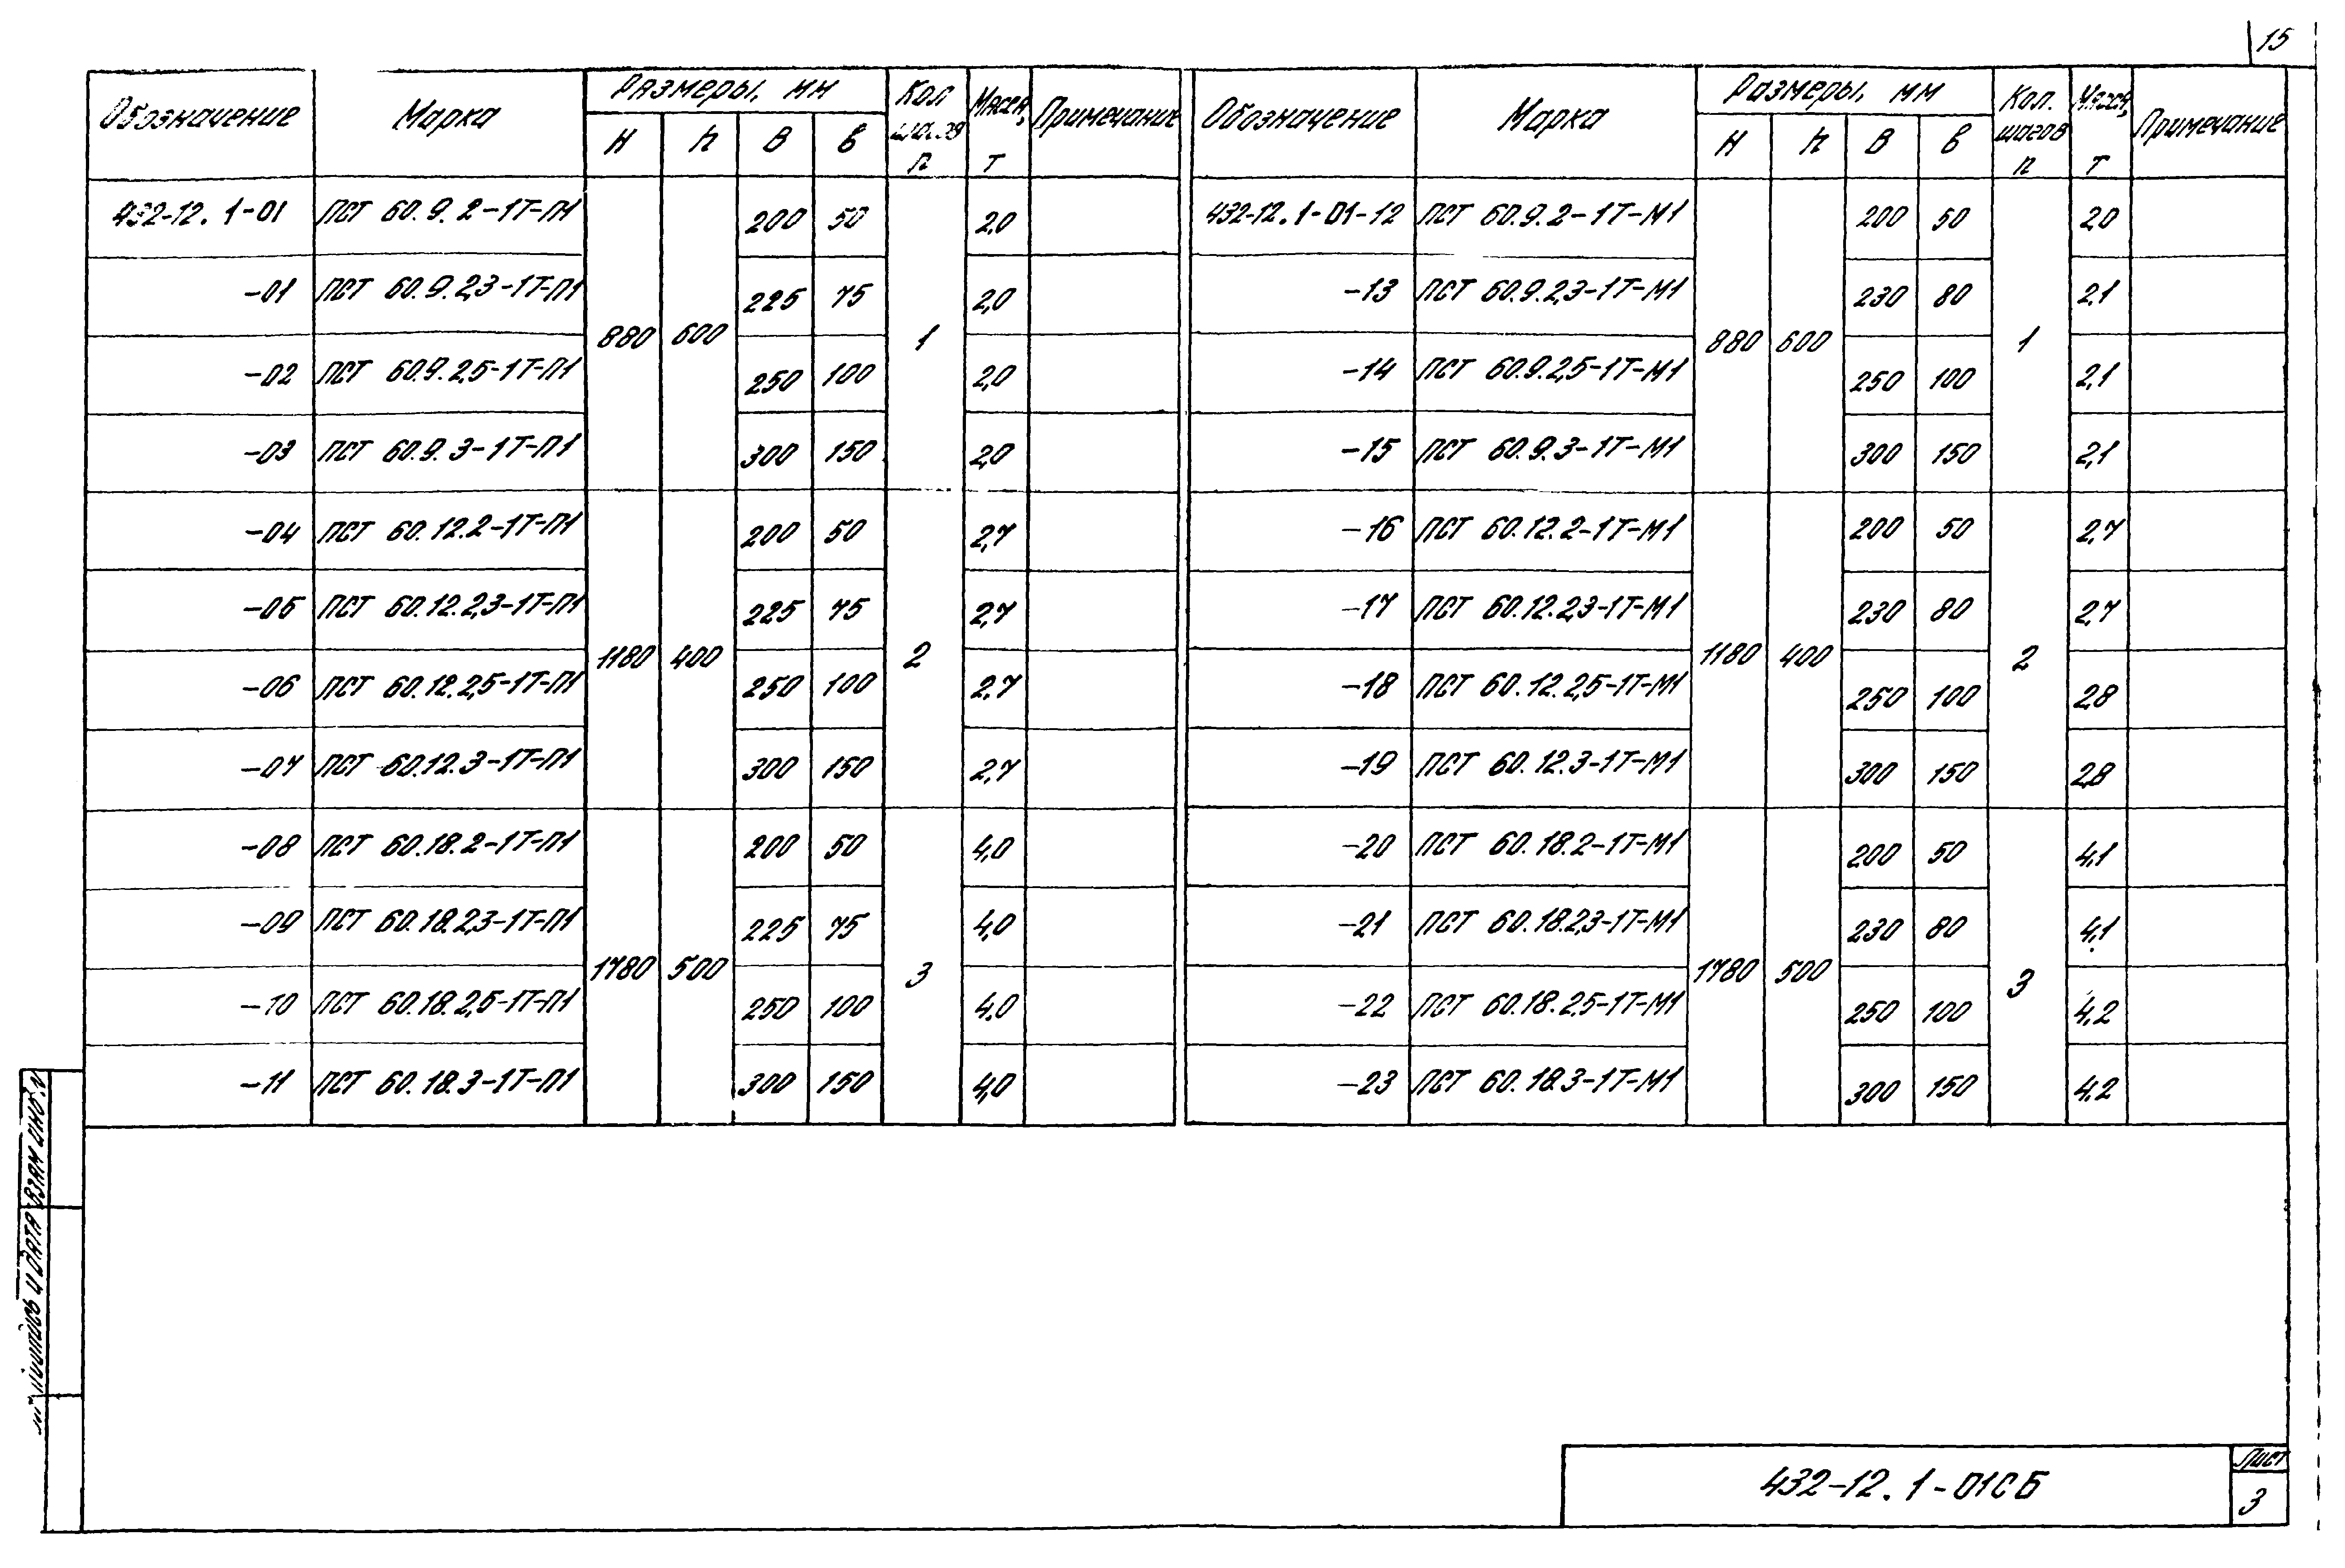 15
Обозначение Марка Размеры, мм Кол шагов п Масса, т Примечание
H h B в
432-12.1-01 ПСТ 60.9.2-1Т-П1 880 600 200 50 1 2,0
-01 ПСТ 60.9.2,3-1Т-П1 225 75 2,0
-02 ПСТ 60.9.2,5-1Т-П1 250 100 2,0
-03 ПСТ 60.9.3-1Т-П1 300 150 2,0
-04 ПСТ 60.12.2-1Т-П1 1180 400 200 50 2 2,7
-05 ПСТ 60.12.2,3-1Т-П1 225 75 2,7
-06 ПСТ 60.12.2,5-1Т-П1 250 100 2,7
-07 ПСТ 60.12.3-1Т-П1 300 150 2,7
-08 ПСТ 60.18.2-1Т-П1 1780 500 200 50 3 4,0
-09 ПСТ 60.18.2,3-1Т-П1 225 75 4,0
-10 ПСТ 60.18.2,5-1Т-П1 250 100 4,0
-11 ПСТ 60.18.3-1Т-П1 300 150 4,0
Обозначение Марка Размеры, мм Кол. шагов п Масса, т Примечание
H h B в
432-12.1-01-12 ПСТ 60.9.2-1Т-М1 880 600 200 50 1 2,0
-13 ПСТ 60.9.2,3-1Т-М1 230 80 2,1
-14 ПСТ 60.9.2,5-1Т-М1 250 100 2,1
-15 ПСТ 60.9.3-1Т-М1 300 150 2,1
-16 ПСТ 60.12.2-1Т-М1 1180 400 200 50 2 2,7
-17 ПСТ 60.12.2,3-1Т-М1 230 80 2,7
-18 ПСТ 60.12.2,5-1Т-М1 250 100 2,8
-19 ПСТ 60.12.3-1Т-М1 300 150 2,8
-20 ПСТ 60.18.2-1Т-М1 1780 500 200 50 3 4,1
-21 ПСТ 60.18.2,3-1Т-М1 230 80 4,1
-22 ПСТ 60.18.2,5-1Т-М1 250 100 4,2
-23 ПСТ 60.18.3-1Т-М1 300 150 4,2
Подпись и дата
Взам инв. N
432-12.1-01СБ
Лист
3